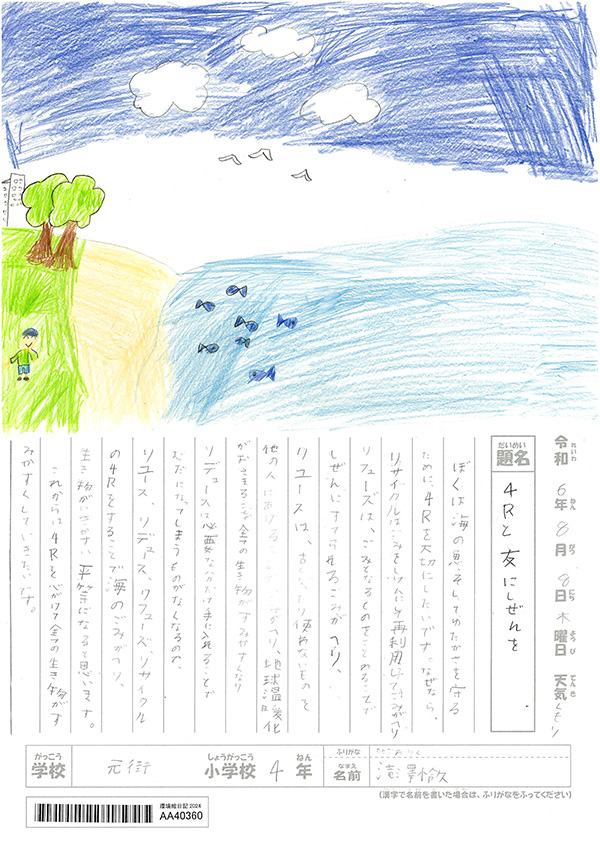 令和 6年 8月 8日 木曜日 天気 くもり
れいわ ねん がつ にち ようび てんき
だいめい
題名
4Rと 友にしぜんを
ぼくは海の恵そしてゆたかさを守る
ために、4Rを大切にしたいです。なぜなら、
リサイクルはごみをしげんにし再利用し、ごみがへり
リフューズは、ごみとなるものをことわることで
しぜんにすてられるごみがへり、
リユースは、古くなったり使わないものを
他の人にあげることで がへり、地球温暖化
がおさまることで全ての生き物がすみやすくなり
リデュースは必要なぶんだけ手に入れることで
むだになってしまうものがなくなるので、
リユース、リデュース、リフューズ、リサイクル
の4Rをすることで海のごみがへり、
生き物がいきやすい 平等になると思います。
これからは4Rを心がけて全ての生き物がす
みやすくしていきたいです。
がっこう しょうがっこう ねん ふりがな
学校 元街 小学校 4年
なまえ
名前 澤
(漢字で名前を書いた場合は、ふりがなをふってください)
環境絵日記 2024
AA40360